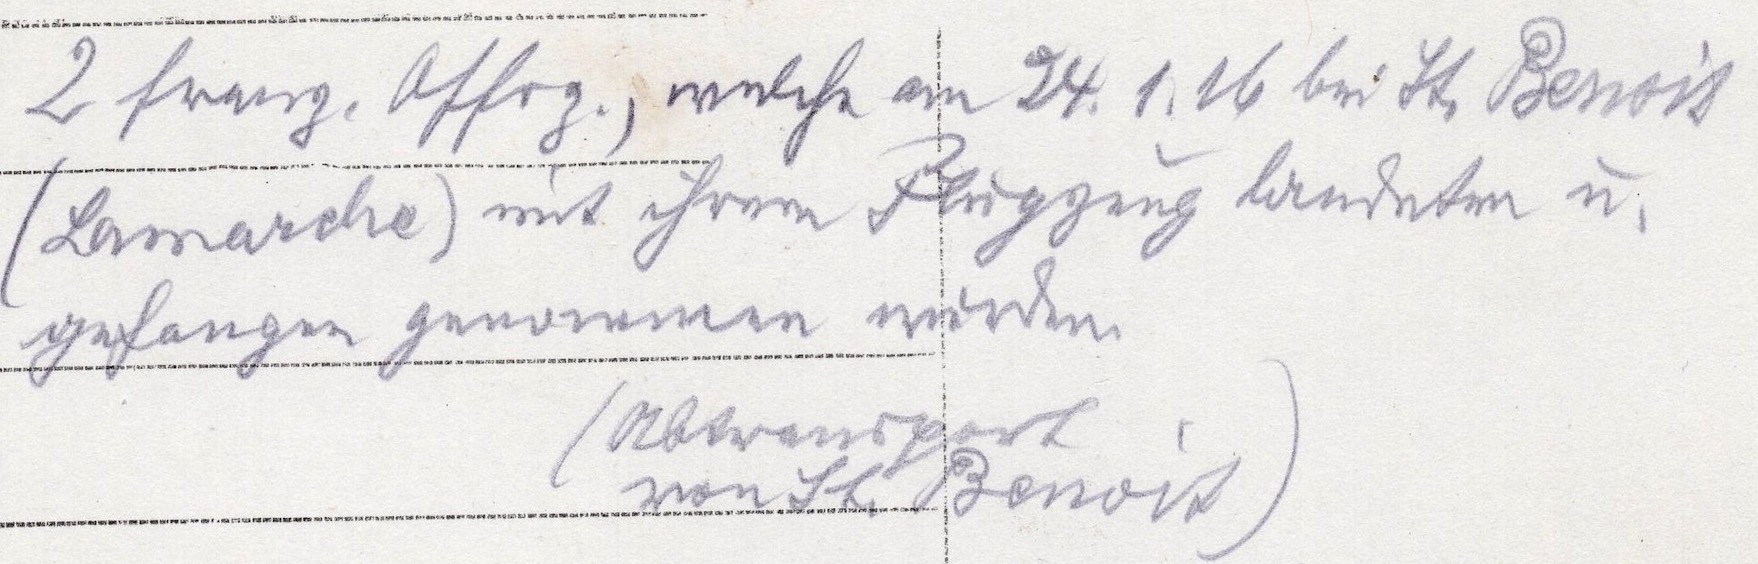 2 franz. Offrz., welche am 24. 1. 16 bei St. Benoit
(Lamarche) mit ihrem Flugzeug landeten u.
gefangen genommen wurden.
(Abtransport
von St. Benoit)